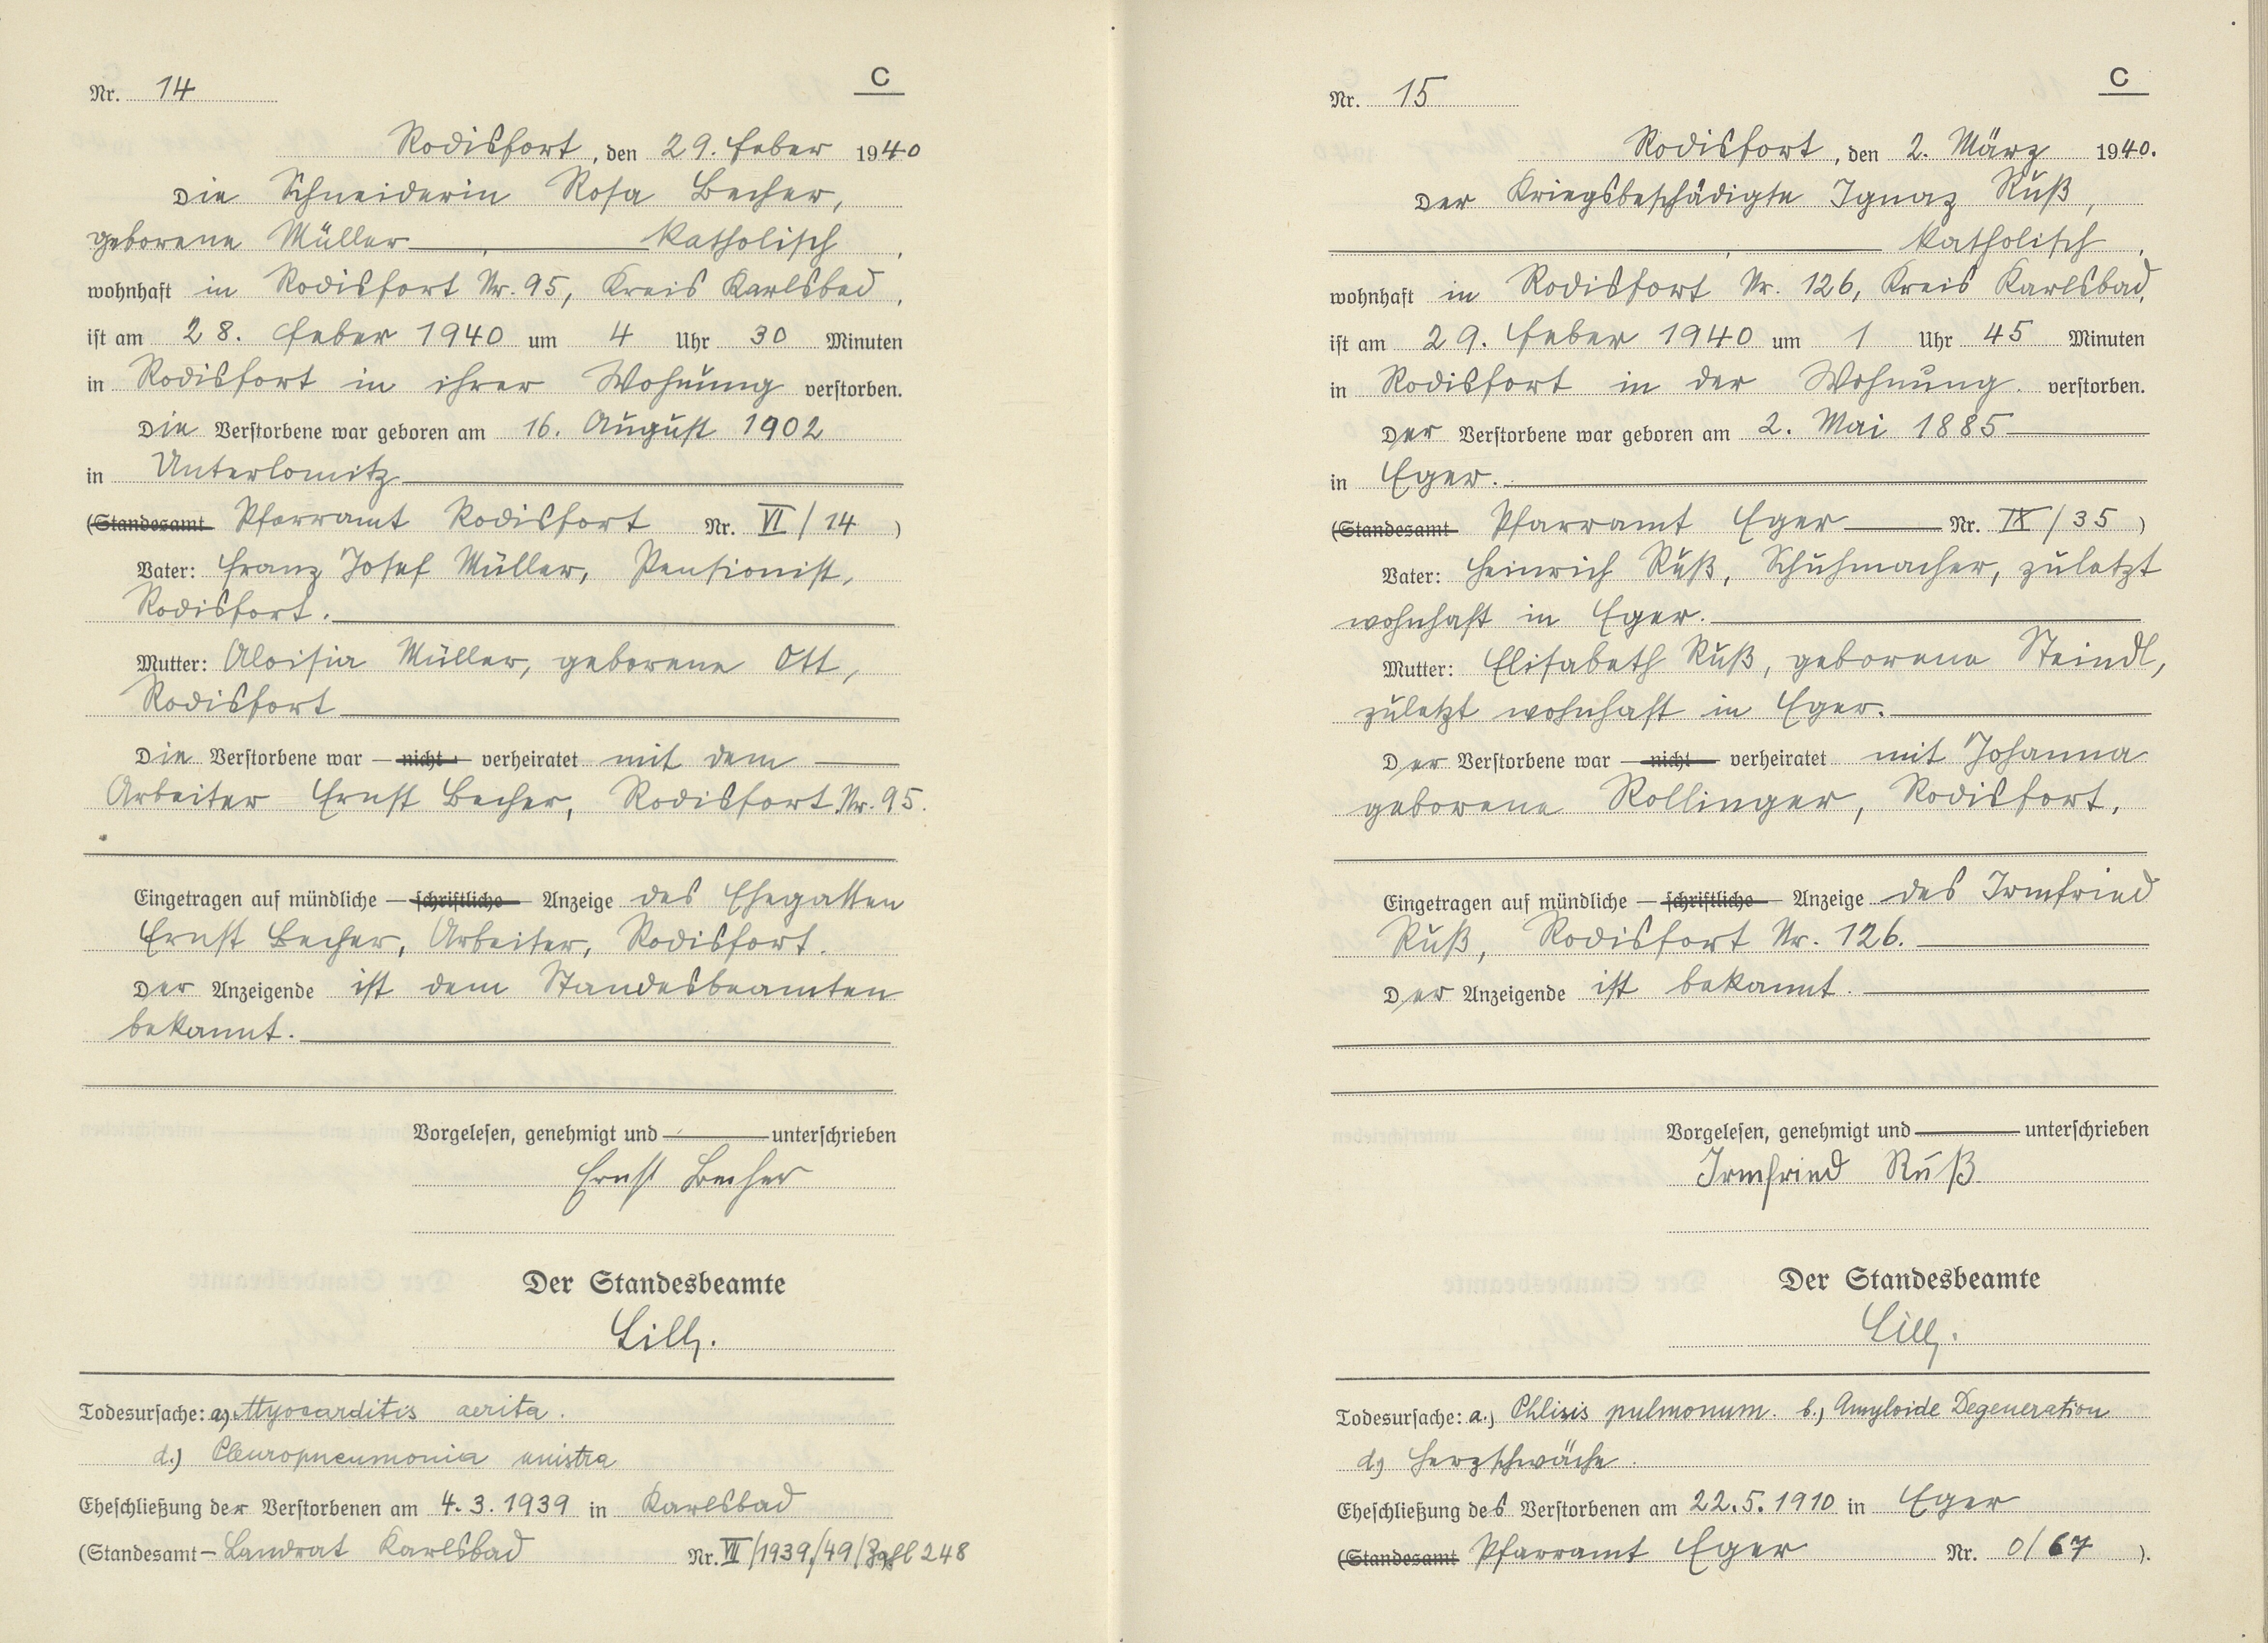 Nr. 14
C
Rodisfort, den 29. Feber 1940
Die Schneiderin Rosa Becher,
geborene Müller, katholisch,
wohnhaft in Rodisfort Nr. 95, Kreis Karlsbad,
ist am 28. Feber 1940 um 4 Uhr 30 Minuten
in Rodisfort in ihrer Wohnung verstorben.
Die Verstorbene war geboren am 16. August 1902
in Unterlomitz
(Standesamt Pfarramt Rodisfort Nr. VI/14)
Vater: Franz Josef Müller, Pensionist,
Rodisfort.
Mutter: Aloisia Müller, geborene Ott,
Rodisfort
Die Verstorbene war — nicht — verheiratet mit dem
Arbeiter Ernst Becher, Rodisfort Nr. 95.
Eingetragen auf mündliche — schriftliche — Anzeige des Ehegatten
Ernst Becher, Arbeiter, Rodisfort.
Der Anzeigende ist dem Standesbeamten
bekannt.
Vorgelesen, genehmigt und unterschrieben
Ernst Becher
Der Standesbeamte
Lill.
Todesursache: a.) Myocarditis
d.) Pleuropneumonia
Eheschließung der Verstorbenen am 4.3.1939 in Karlsbad
(Standesamt – Landrat Karlsbad Nr. VII/1939/49/ 248
Nr. 15
C
Rodisfort, den 2. März 1940.
Der Kriegsbeschädigte Ignaz Ruß,
, katholisch,
wohnhaft in Rodisfort Nr. 126, Kreis Karlsbad,
ist am 29. Feber 1940 um 1 Uhr 45 Minuten
in Rodisfort in der Wohnung. verstorben.
Der Verstorbene war geboren am 2. Mai 1885
in Eger.
(Standesamt Pfarramt Eger Nr. IX/35)
Vater: Heinrich Ruß, Schuhmacher, zuletzt
wohnhaft in Eger.
Mutter: Elisabeth Ruß, geborene Steindl,
zuletzt wohnhaft in Eger.
Der Verstorbene war — nicht — verheiratet mit Johanna
geborene Rollinger, Rodisfort.
Eingetragen auf mündliche — schriftliche — Anzeige des Irmfried
Ruß, Rodisfort Nr. 126.
Der Anzeigende ist bekannt.
Vorgelesen, genehmigt und unterschrieben
Irmfried Ruß
Der Standesbeamte
Lill.
Todesursache: a.) Phtisis pulmonum. b.) Amyloide Degeneration
d.) Herzschwäche.
Eheschließung des Verstorbenen am 22.5.1910 in Eger
(Standesamt Pfarramt Eger Nr. O/67).